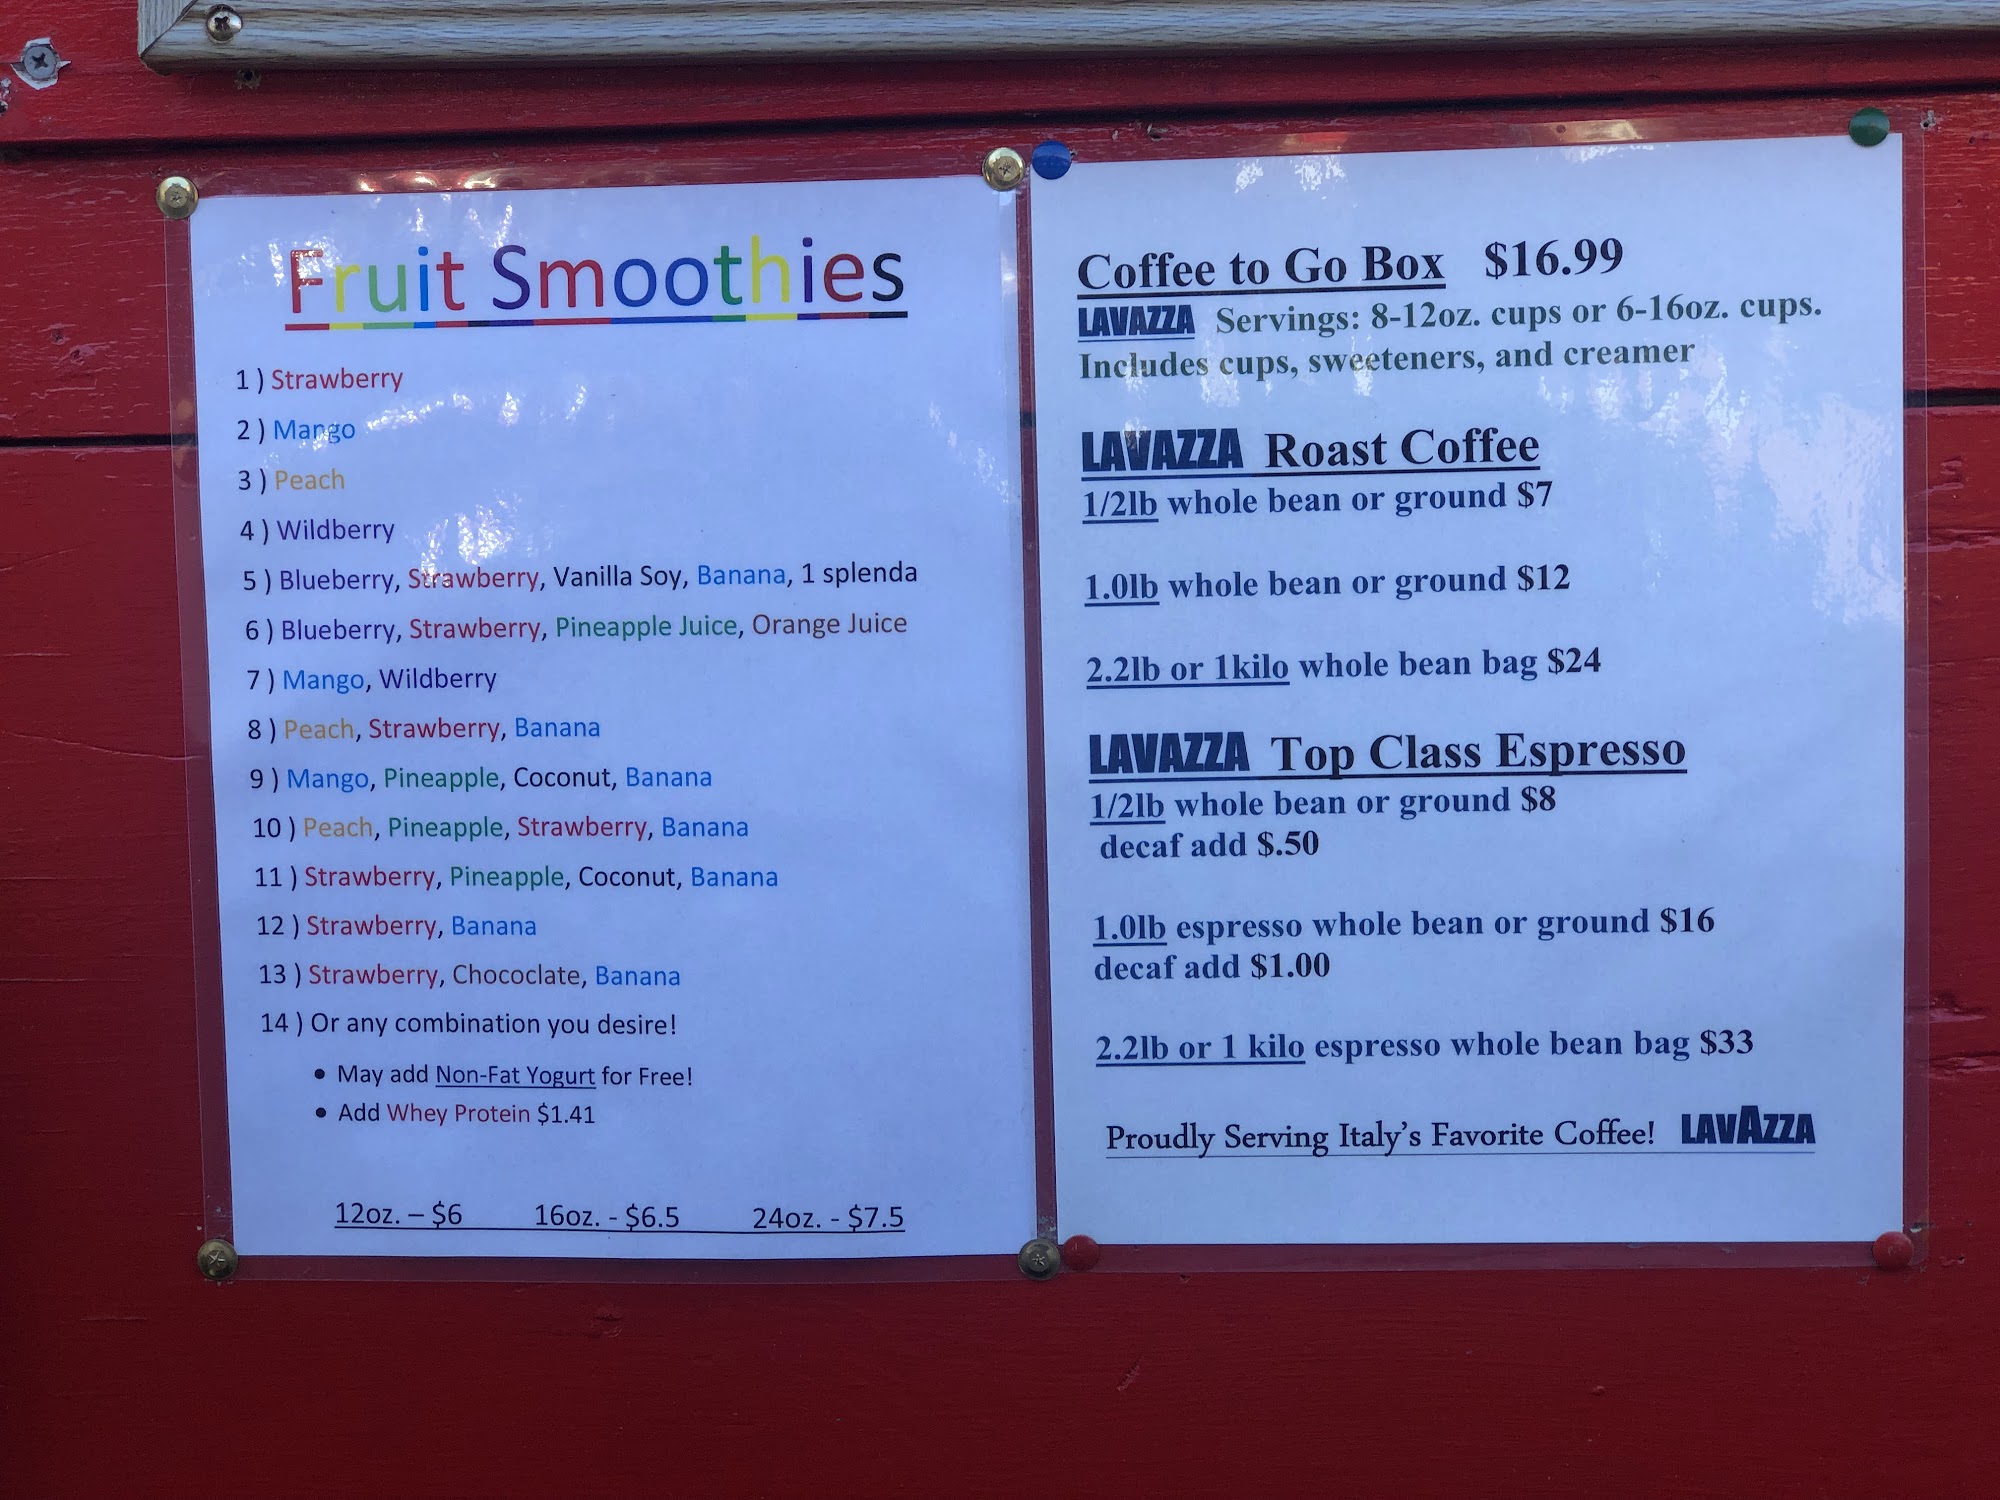 Fruit Smoothies
1 ) Strawberry
2 ) Mango
3 ) Peach
4 ) Wildberry
5 ) Blueberry, Strawberry, Vanilla Soy, Banana, 1 splenda
6 ) Blueberry, Strawberry, Pineapple Juice, Orange Juice
7 ) Mango, Wildberry
8 ) Peach, Strawberry, Banana
9 ) Mango, Pineapple, Coconut, Banana
10 ) Peach, Pineapple, Strawberry, Banana
11 ) Strawberry, Pineapple, Coconut, Banana
12 ) Strawberry, Banana
13 ) Strawberry, Chococlate, Banana
14 ) Or any combination you desire!
• May add Non-Fat Yogurt for Free!
• Add Whey Protein $1.41
12oz. – $6 16oz. - $6.5 24oz. - $7.5
Coffee to Go Box $16.99
LAVAZZA Servings: 8-12oz. cups or 6-16oz. cups.
Includes cups, sweeteners, and creamer
LAVAZZA Roast Coffee
1/2lb whole bean or ground $7
1.0lb whole bean or ground $12
2.2lb or 1kilo whole bean bag $24
LAVAZZA Top Class Espresso
1/2lb whole bean or ground $8
decaf add $.50
1.0lb espresso whole bean or ground $16
decaf add $1.00
2.2lb or 1 kilo espresso whole bean bag $33
Proudly Serving Italy's Favorite Coffee! LAVAZZA